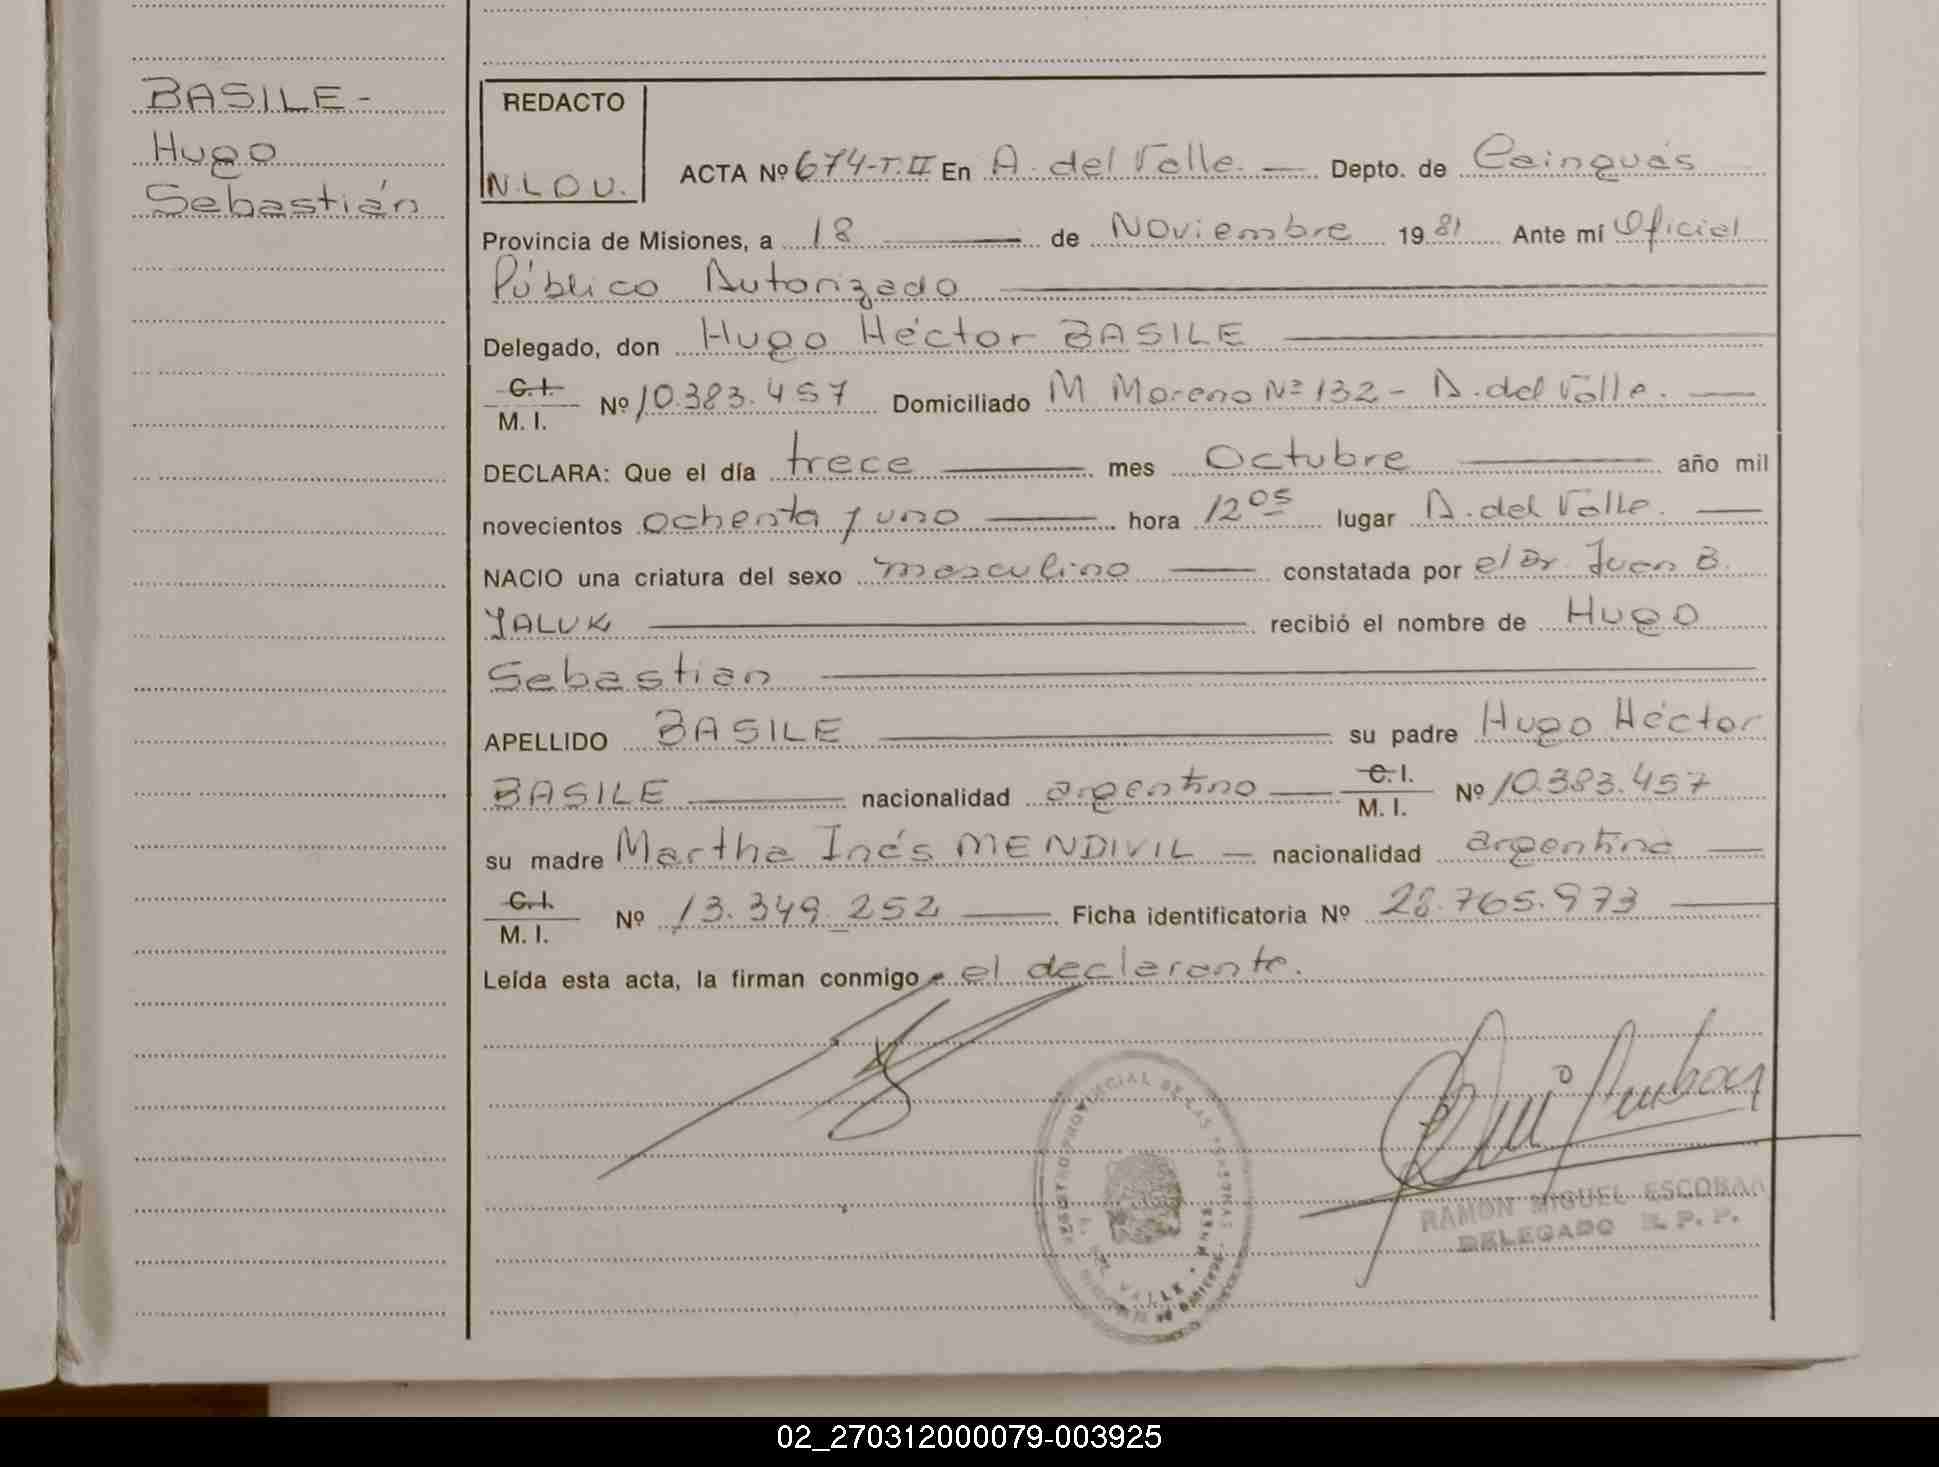 BASILE -
Hugo
Sebastián
REDACTO
N.L.O.U.
ACTA Nº 674-T.II En A. del Valle. Depto. de Cainguás
Provincia de Misiones, a 18 de Noviembre 1981 Ante mí Oficial
Público Autorizado
Delegado, don Hugo Héctor BASILE
C.I. M.I. Nº 10.383.457 Domiciliado M Moreno Nº 132 - A. del Valle.
DECLARA: Que el día trece mes Octubre año mil
novecientos ochenta y uno hora 12 05 lugar A. del Valle.
NACIO una criatura del sexo masculino constatada por el Dr. Juan B.
YALUK recibió el nombre de Hugo
Sebastian
APELLIDO BASILE su padre Hugo Héctor
BASILE nacionalidad argentino C.I. M.I. Nº 10.383.457
su madre Martha Inés MENDIVIL nacionalidad argentina
C.I. M.I. Nº 13.349.252 Ficha identificatoria Nº 28.765.973
Leída esta acta, la firman conmigo el declarante.
REGISTRO PROVINCIAL DE LAS PERSONAS
A. DEL VALLE
RAMON MIGUEL ESCOBAR
DELEGADO R. P. P.
02_270312000079-003925